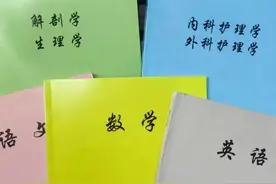 解剖学
生理学
内科护理学
外科护理学
语文
数学
英语